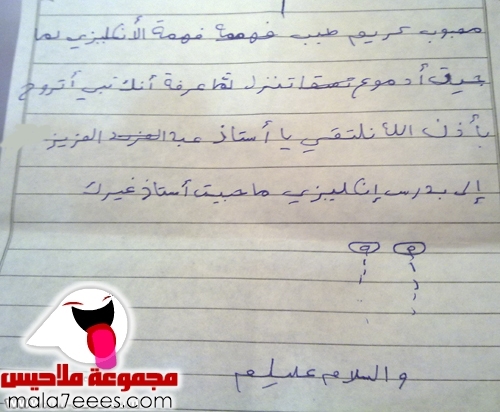 محبوب كريم طيب فهمة فهمة الأنكليزي بما
أدموع تنزل لما عرفة أنك تبي أتروح
بأذن الله نلتقي يا أستاذ عبد العزيز العزيز
إلى بدرس إنكليزي ما حبيت أستاذ غيرك
والسلام عليكم
مجموعة ملاحيس
mala7eees.com